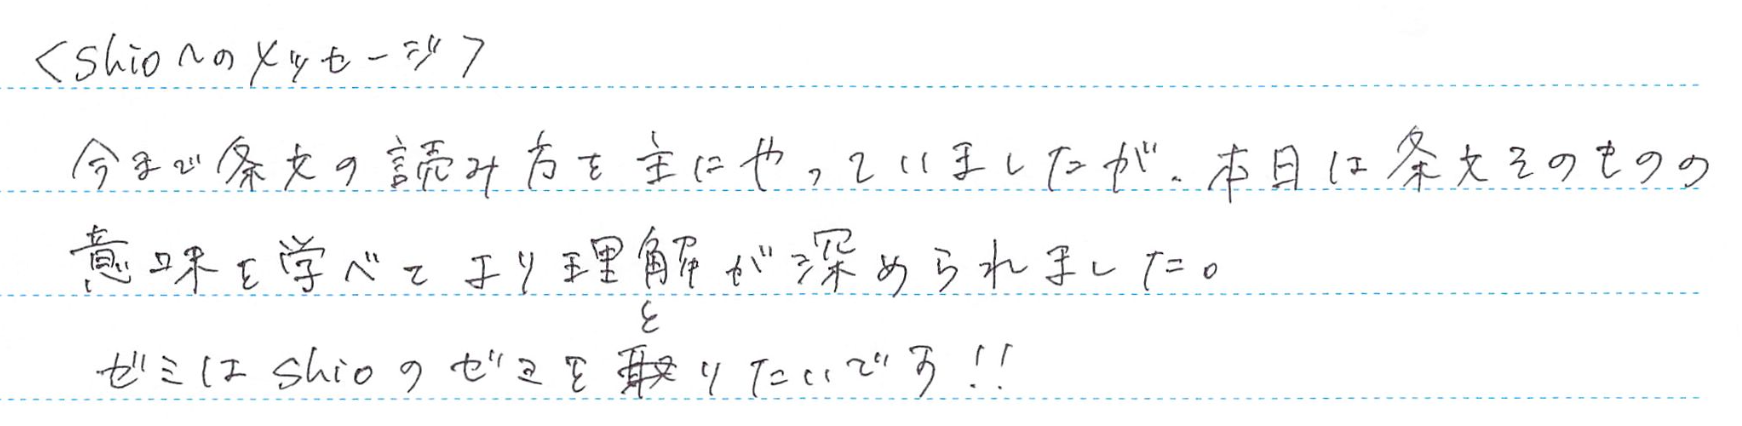 ＜shioへのメッセージ＞
今まで条文の読み方を主にやっていましたが、本日は条文そのものの
意味を学べてより理解が深められました。
ゼミはshioのゼミをとりたいです!!